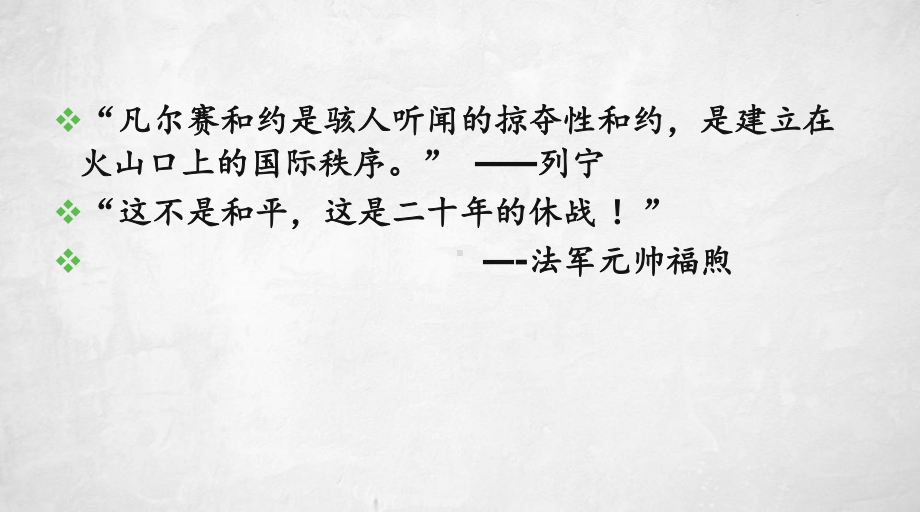 “凡尔赛和约是骇人听闻的掠夺性和约，是建立在
火山口上的国际秩序。” ——列宁
“这不是和平，这是二十年的休战 ！”
—-法军元帅福煦